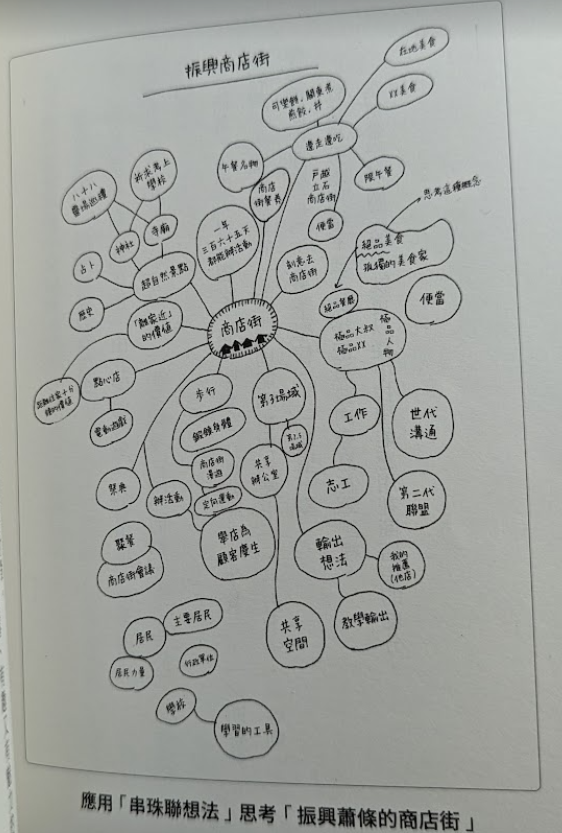 振興商店街
在地美食
XX美食
可樂餅，關東煮
煎餃，丼
邊走邊吃
吃午餐
午餐名物
商店
街餐券
戶越
立石
商店街
便當
思考這種概念
絕品美食
孤獨的美食家
絕品餐廳
便當
極品大叔
極品XX
極品人物
世代
溝通
工作
志工
第二代
聯盟
刻意去
商店街
一年
三百六十五天
都能辦活動
祈求馬上
學校
八十八
靈場巡禮
神社
寺廟
占卜
超自然景點
歷史
「離家近」
的價值
商店街
點心店
電動遊戲
步行
鍛鍊身體
商店街
漫遊
定向運動
第3場域
第2.5
場域
共享
辦公室
共享
空間
祭典
辦活動
舉店為
顧客慶生
聚餐
商店街會議
輸出
想法
我的
推薦
(他店)
教學輸出
主要居民
居民
居民力量
行政單位
學校
學習的工具
應用「串珠聯想法」思考「振興蕭條的商店街」